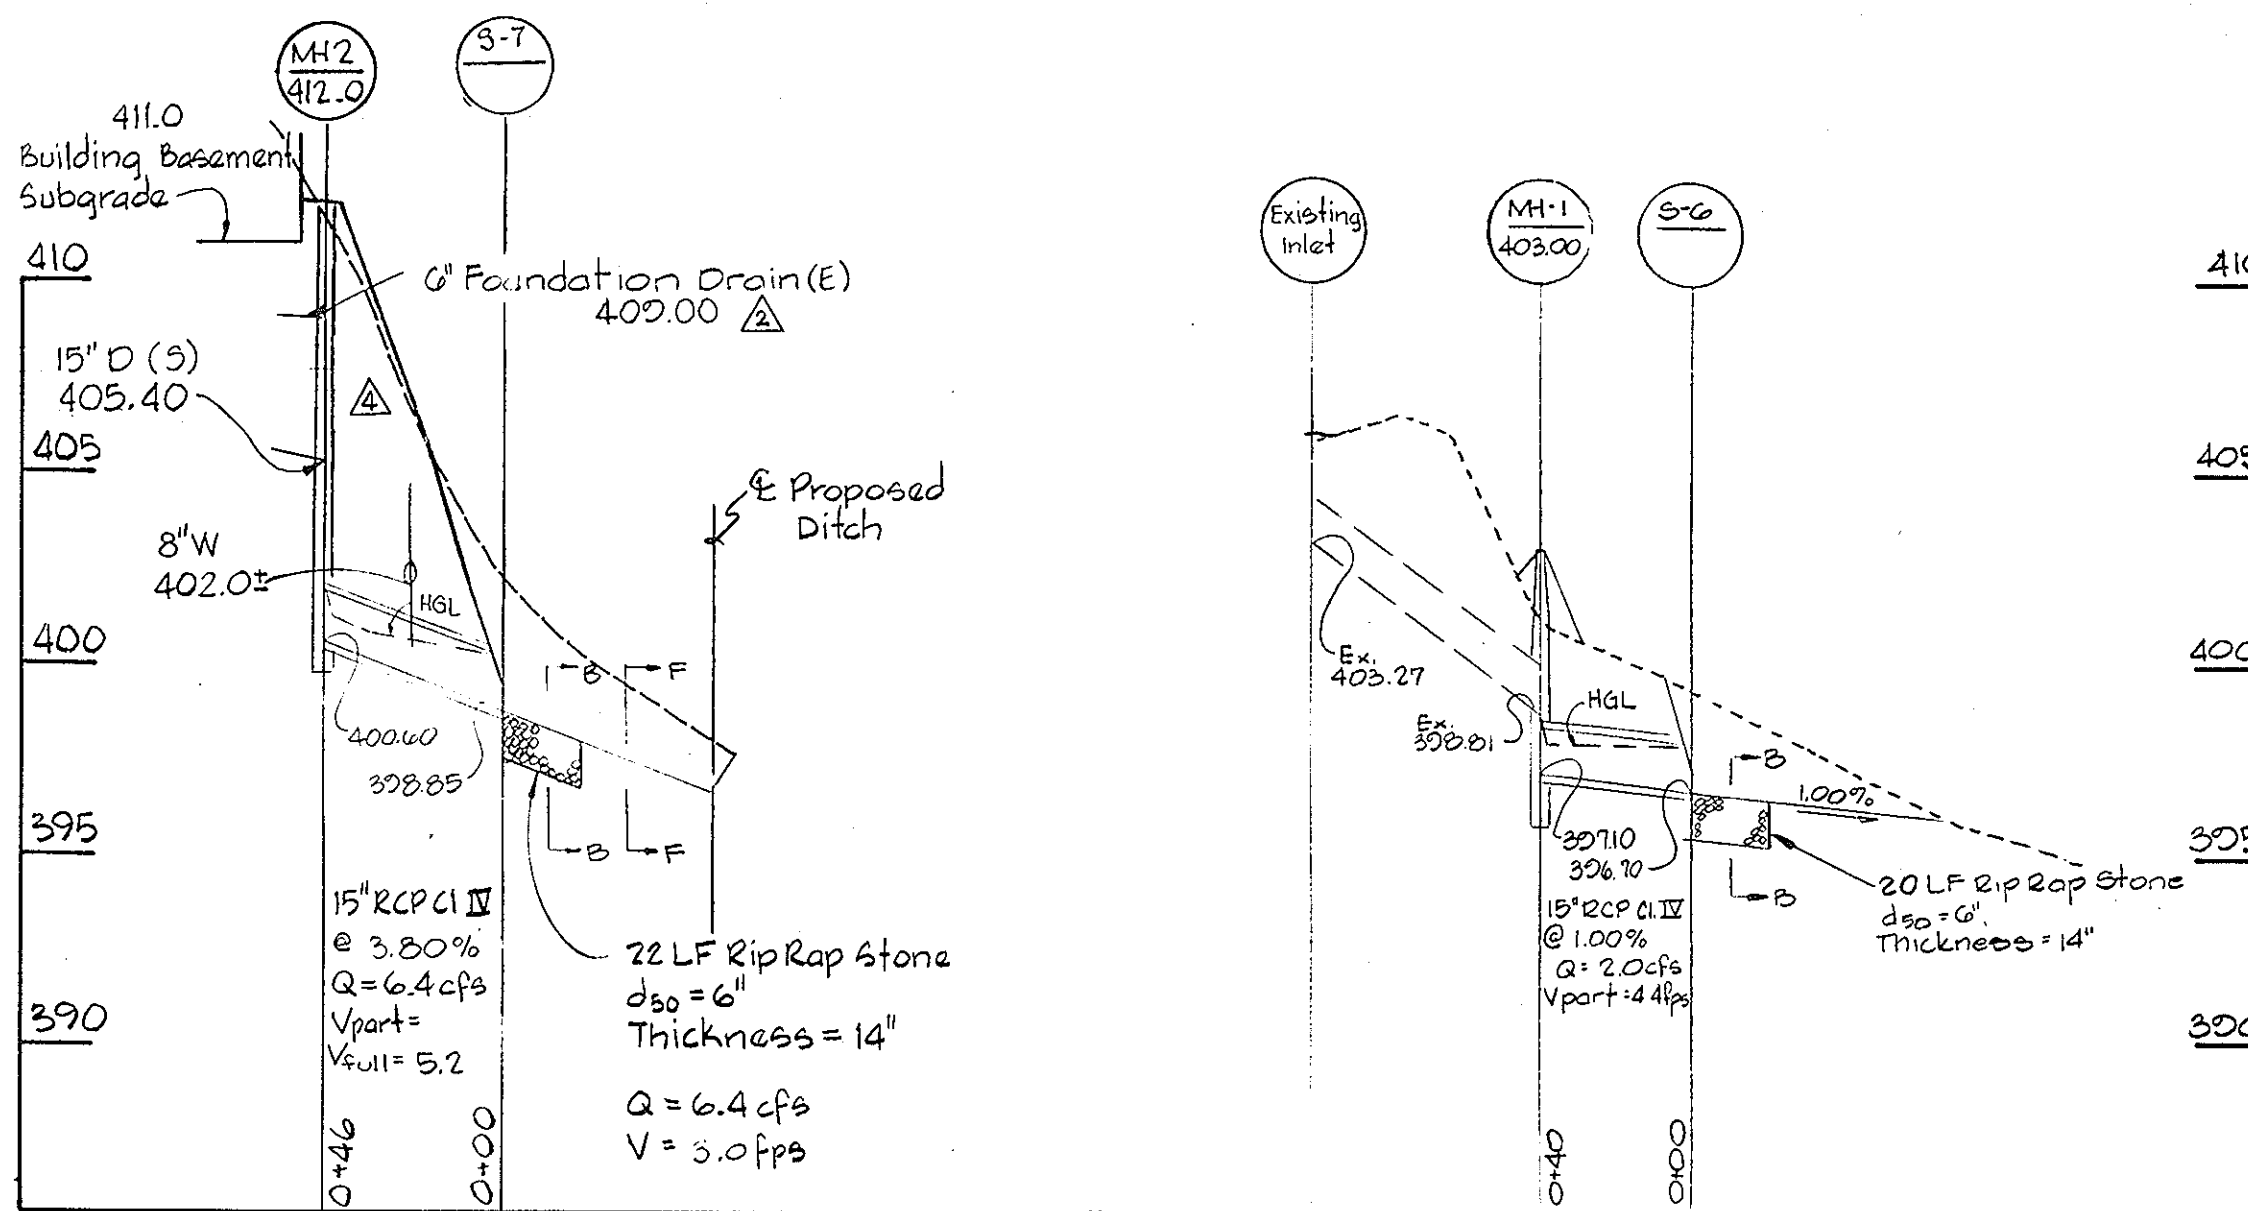 MH2
412.0
S-7
411.0
Building Basement
Subgrade
410
6" Foundation Drain (E)
409.00
2
15" D (S)
405.40
4
405
℄ Proposed
Ditch
8" W
402.0±
HGL
400
B
F
400.60
398.85
395
B
F
15" RCP Cl IV
@ 3.80%
Q = 6.4 cfs
Vpart =
Vfull = 5.2
390
22 LF Rip Rap Stone
d50 = 6"
Thickness = 14"
Q = 6.4 cfs
V = 3.0 fps
0+46
0+00
Existing
Inlet
MH-1
403.00
S-6
Ex.
403.27
Ex.
398.81
HGL
B
1.00%
397.10
396.70
B
20 LF Rip Rap Stone
d50 = 6"
Thickness = 14"
15" RCP Cl. IV
@ 1.00%
Q = 2.0cfs
Vpart = 4.4fps
0+40
0+00